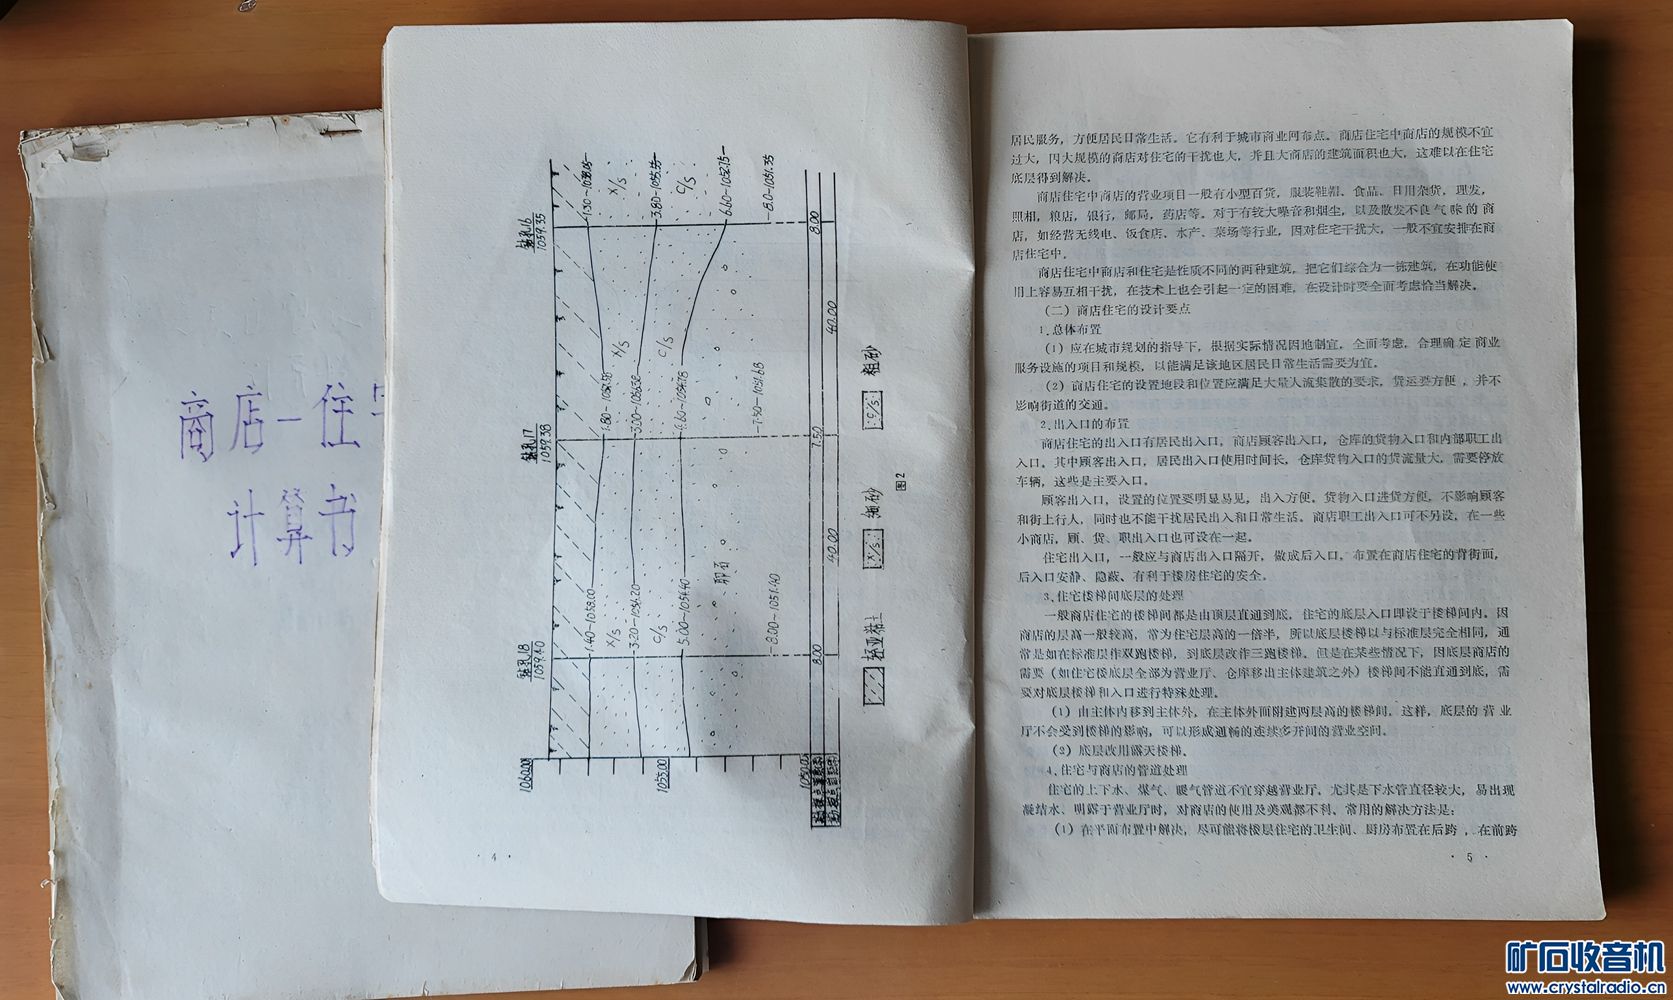 商店—住
计算书
钻孔16
1059.35
钻孔17
1059.38
钻孔18
1059.40
3.80—1055.55
6.60—1052.75
8.0—1051.35
1.80—1057.58
3.00—1056.38
4.60—1054.78
7.50—1051.88
1.40—1058.00
3.20—1056.20
5.00—1054.40
8.00—1051.40
x/s
c/s
x/s
c/s
x/s
c/s
卵石
8.00
40.00
7.50
40.00
8.00
1060.00
1055.00
1050.00
轻亚粘土
x/s
细砂
c/s
粗砂
图2
· 4 ·
居民服务，方便居民日常生活。它有利于城市商业网布点。商店住宅中商店的规模不宜
过大，因大规模的商店对住宅的干扰也大，并且大商店的建筑面积也大，这难以在住宅
底层得到解决。
商店住宅中商店的营业项目一般有小型百货，服装鞋帽、食品、日用杂货，理发，
照相，粮店，银行，邮局，药店等。对于有较大噪音和烟尘，以及散发不良气味的商
店，如经营无线电、饭食店、水产、菜场等行业，因对住宅干扰大，一般不宜安排在商
店住宅中。
商店住宅中商店和住宅是性质不同的两种建筑，把它们综合为一栋建筑，在功能使
用上容易互相干扰，在技术上也会引起一定的困难，在设计时要全面考虑恰当解决。
（二）商店住宅的设计要点
1.总体布置
（1）应在城市规划的指导下，根据实际情况因地制宜，全面考虑，合理确定商业
服务设施的项目和规模，以能满足该地区居民日常生活需要为宜。
（2）商店住宅的设置地段和位置应满足大量人流集散的要求，货运要方便，并不
影响街道的交通。
2.出入口的布置
商店住宅的出入口有居民出入口，商店顾客出入口，仓库的货物入口和内部职工出
入口。其中顾客出入口，居民出入口使用时间长，仓库货物入口的货流量大，需要停放
车辆，这些是主要入口。
顾客出入口，设置的位置要明显易见，出入方便。货物入口进货方便，不影响顾客
和街上行人，同时也不能干扰居民出入和日常生活。商店职工出入口可不另设，在一些
小商店，顾、货、职出入口也可设在一起。
住宅出入口，一般应与商店出入口隔开，做成后入口。布置在商店住宅的背街面，
后入口安静、隐蔽、有利于楼房住宅的安全。
3.住宅楼梯间底层的处理
一般商店住宅的楼梯间都是由顶层直通到底，住宅的底层入口即设于楼梯间内。因
商店的层高一般较高，常为住宅层高的一倍半，所以底层楼梯以与标准层完全相同，通
常是如在标准层作双跑楼梯，到底层改作三跑楼梯。但是在某些情况下，因底层商店的
需要（如住宅楼底层全部为营业厅、仓库移出主体建筑之外）楼梯间不能直通到底，需
要对底层楼梯和入口进行特殊处理。
（1）由主体内移到主体外，在主体外面附建两层高的楼梯间。这样，底层的营业
厅不会受到楼梯的影响，可以形成通畅的连续多开间的营业空间。
（2）底层改用露天楼梯。
4.住宅与商店的管道处理
住宅的上下水、煤气、暖气管道不宜穿越营业厅。尤其是下水管直径较大，易出现
凝结水、明露于营业厅时，对商店的使用及美观都不利。常用的解决方法是：
（1）在平面布置中解决，尽可能将楼层住宅的卫生间、厨房布置在后跨，在前跨
· 5 ·
矿石收音机
www.crystalradio.cn